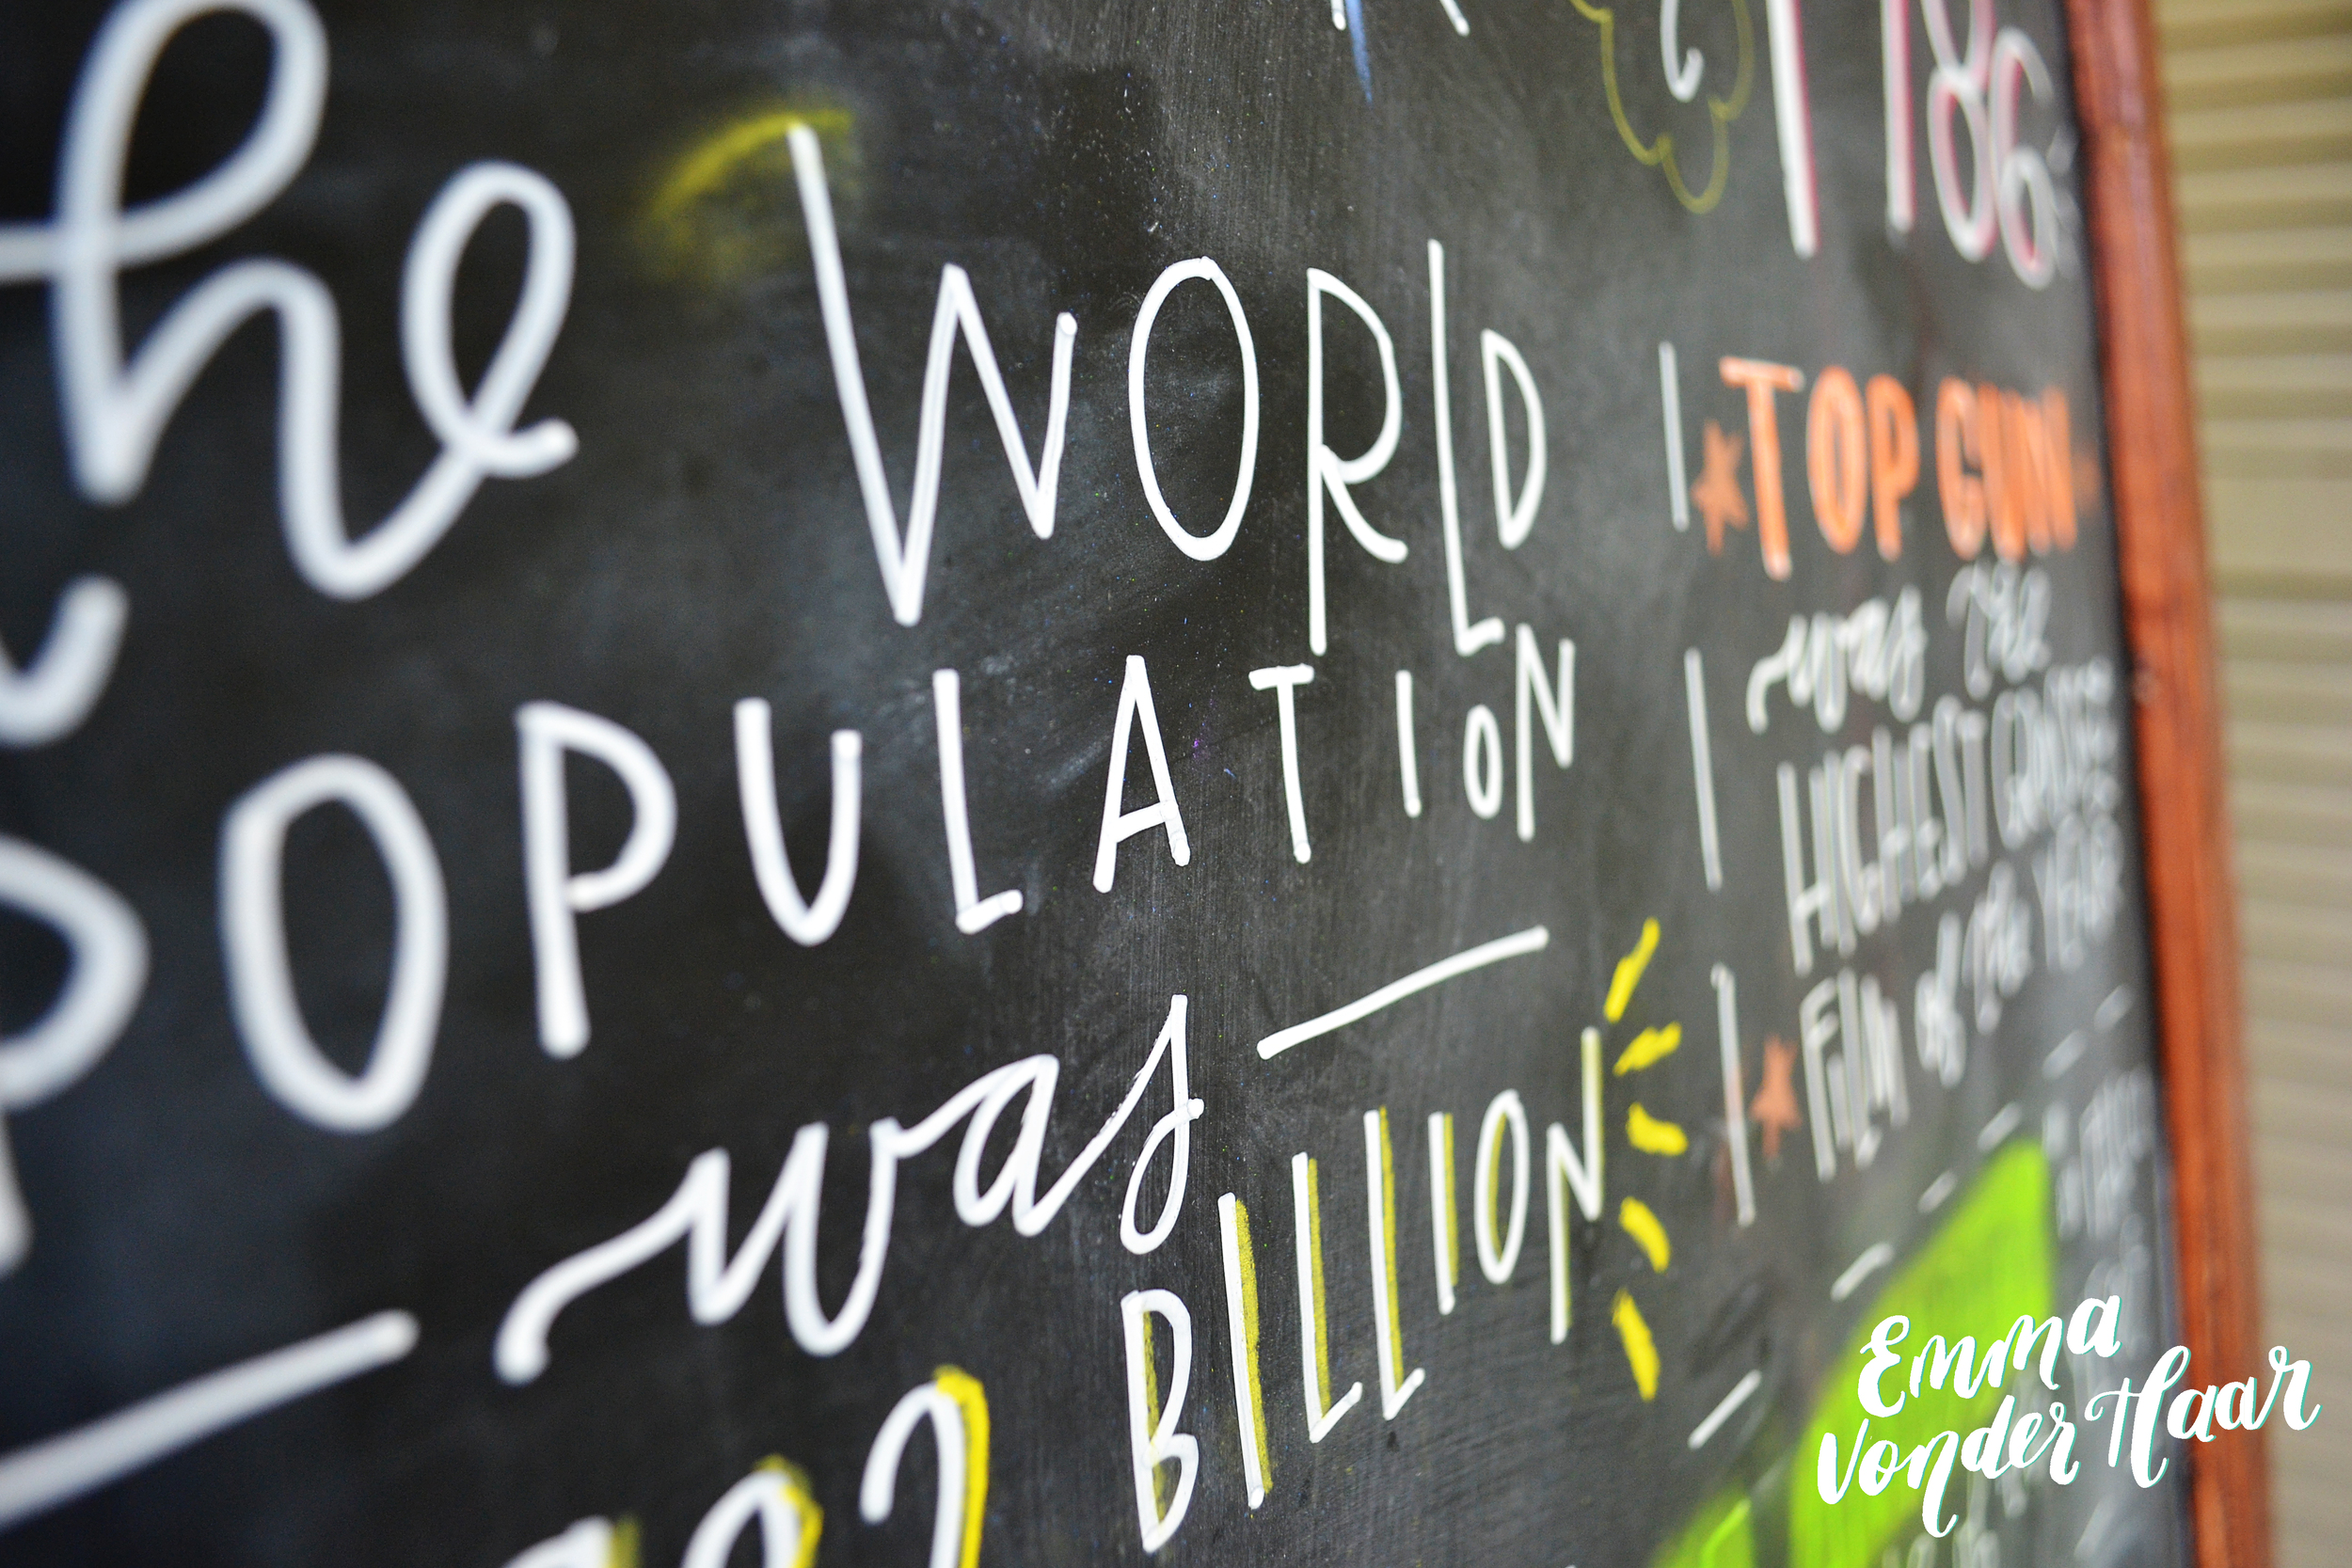 1986
The WORLD
POPULATION
was
BILLION
TOP GUN
was the
HIGHEST GROSSING
FILM of the YEAR
Emma
Vonder Haar